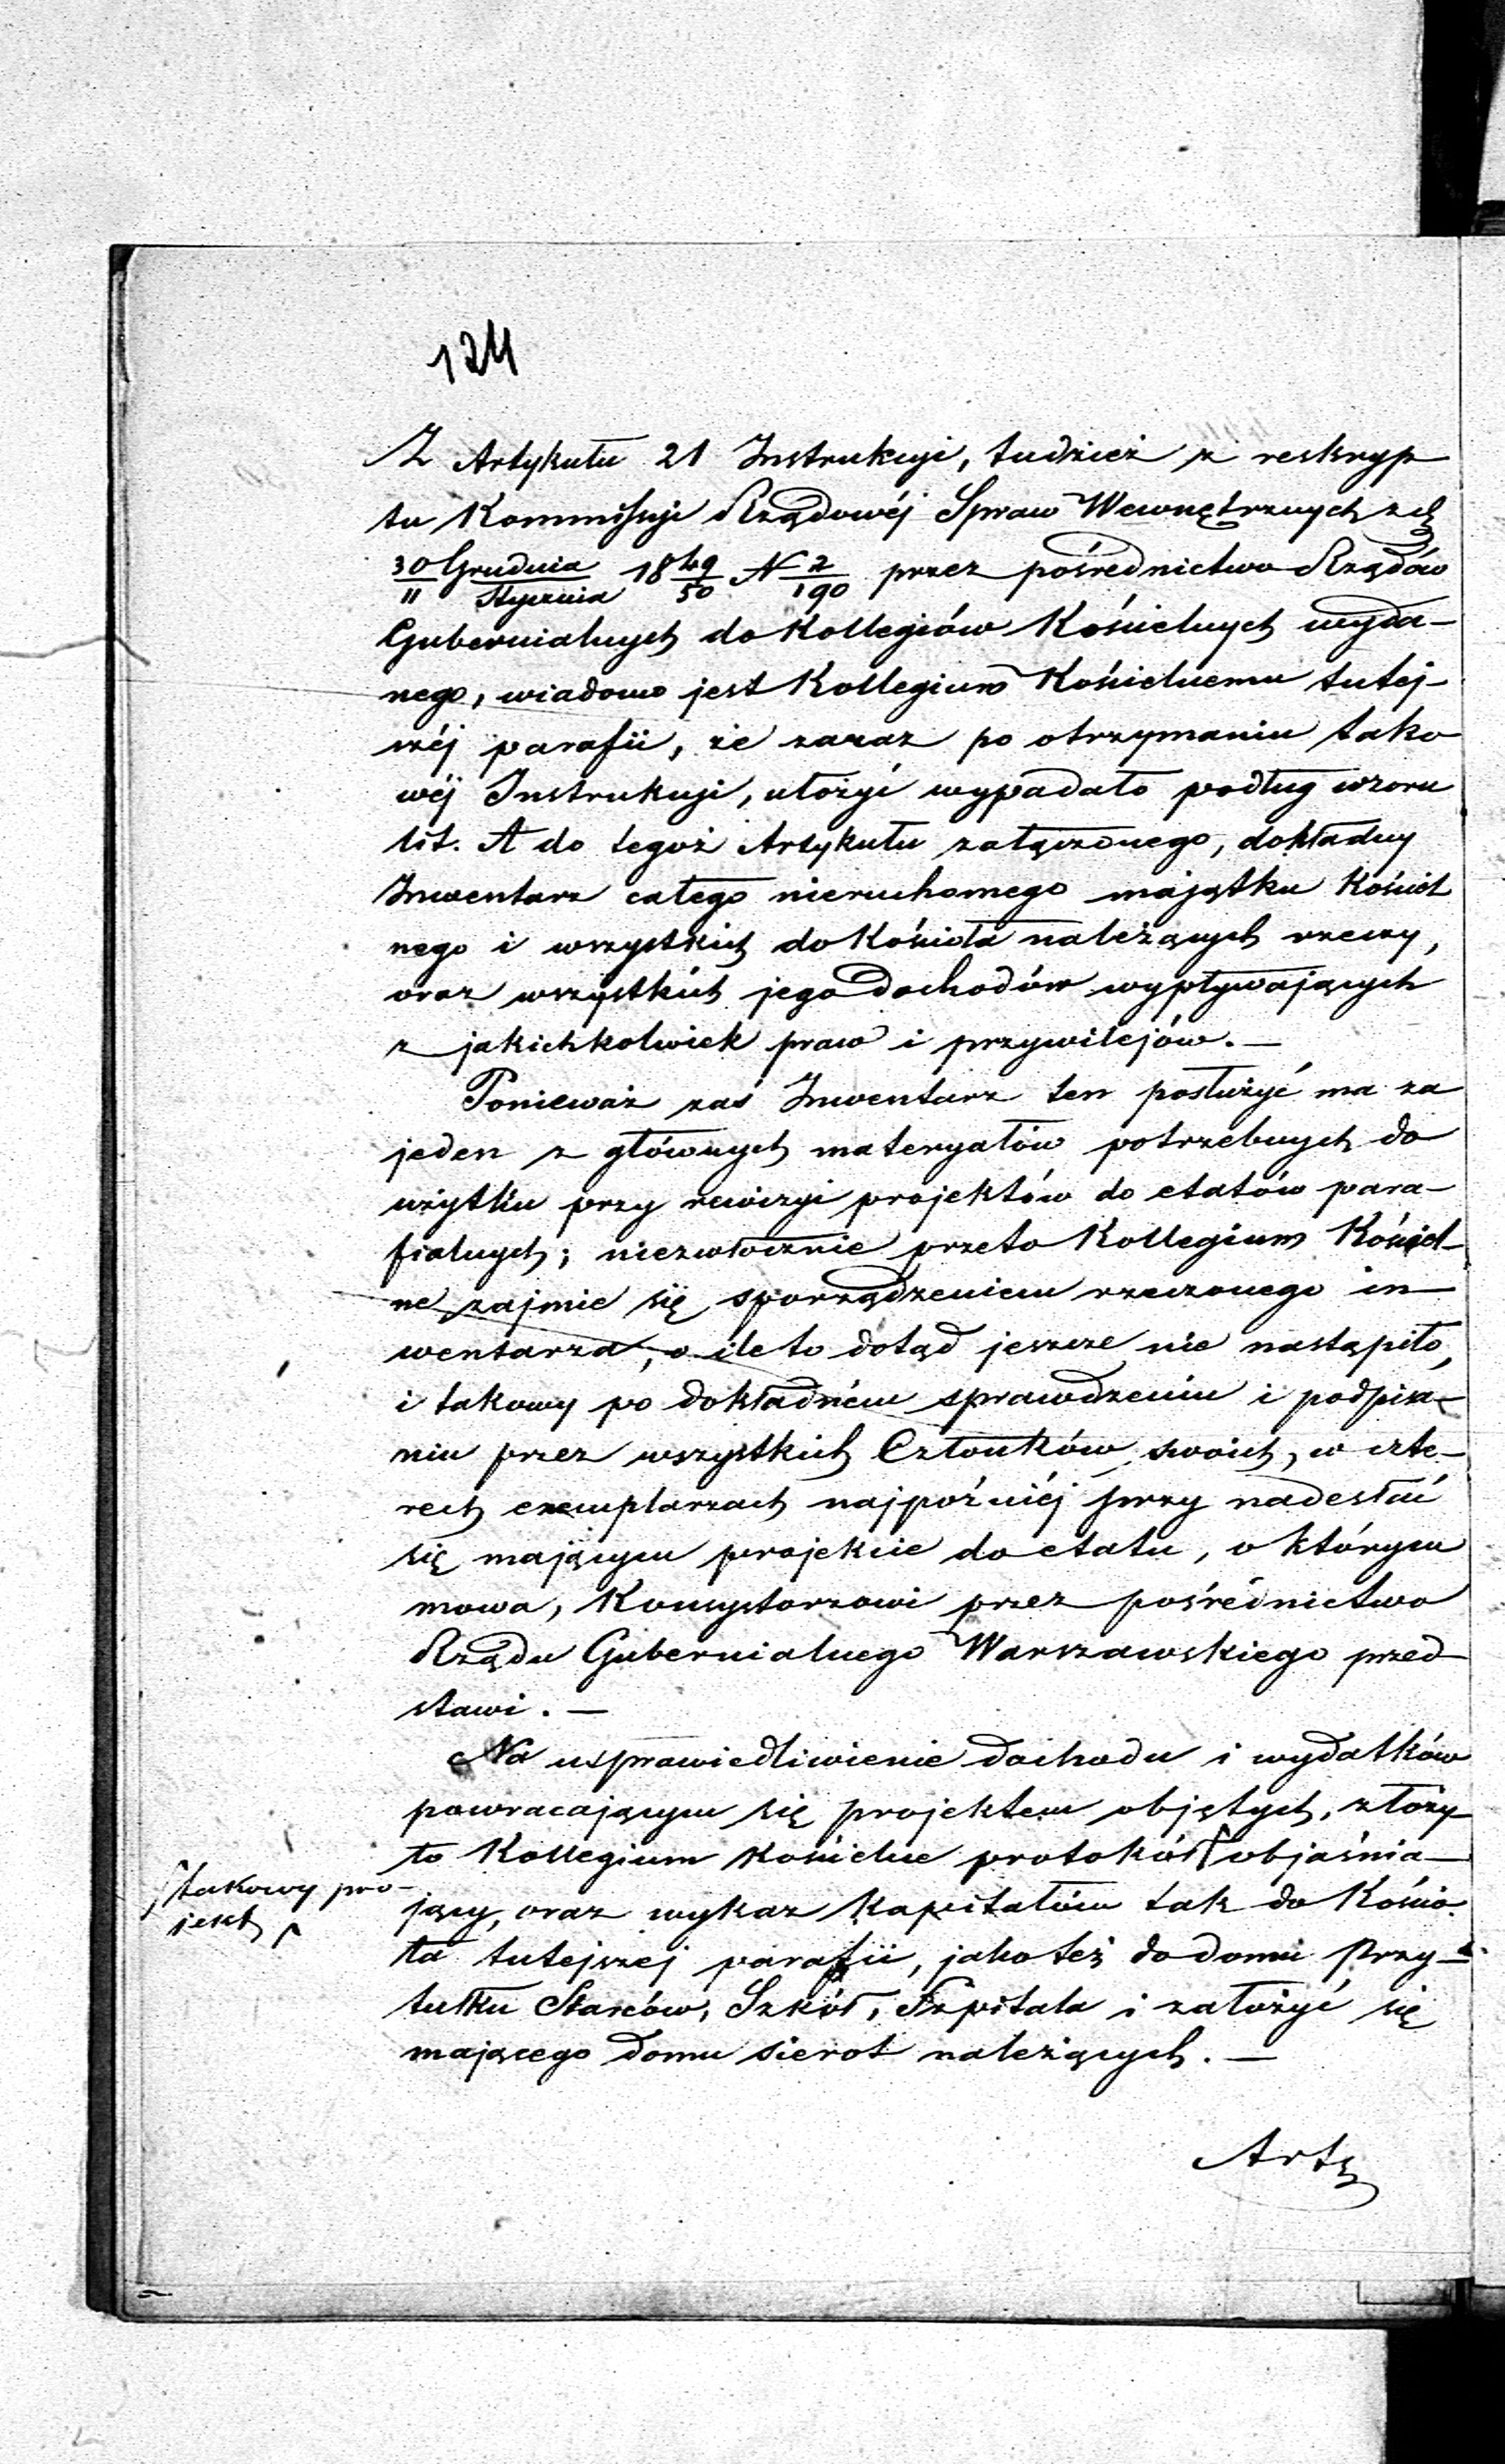 124
Z Artykułu 21 Instrukcyi, tudzież z reskryp
tu Kommissyi Rządowéj Spraw Wewnętrznych z d
30/11 Grudnia/Stycznia 18 49/50 N 2/190 przez pośrednictwo Rządów
Gubernialnych do Kollegiów Kościelnych wyda-
nego, wiadomo jest Kollegium Kościelnemu tutej-
széj parafii, że zaraz po otrzymaniu tako
wéj Instrukcyi, ułożyć wypadało podług wzoru
lit. A do tegoż Artykułu załączonego, dokładny
Inwentarz całego nieruchomego majątku Kościel
nego i wszystkich do Kościoła należących rzeczy,
oraz wszystkich jego dochodów wypływających
z jakichkolwiek praw i przywilejów. —
Ponieważ zaś Inwentarz ten posłużyć ma za
jeden z głównych materyałów potrzebnych do
użytku przy rewizyi projektów do etatów para-
fialnych; niezwłocznie przeto Kollegium Kościel-
ne zajmie się sporządzeniem rzeczonego in-
wentarza, o ile to dotąd jeszcze nie nastąpiło,
i takowy po dokładném sprawdzeniu i podpisa-
niu przez wszystkich Członków swoich, w czte-
rech exemplarzach najpóźniéj przy nadesłać
się mającym projekcie do etatu, o którym
mowa, Konsystorzowi przez pośrednictwo
Rządu Gubernialnego Warszawskiego przed
stawi. —
Na usprawiedliwienie dochodu i wydatków
powracającym się projektem objętych, złoży
ło Kollegium Kościelne protokół objaśnia-
takowy pro-
jekt
jący, oraz wykaz kapitałów tak do Kościo
ła tutejszej parafii, jako też do domu Przy-
tułku Starców, Szkół, Szpitala i założyć się
mającego domu sierot należących. —
Arty